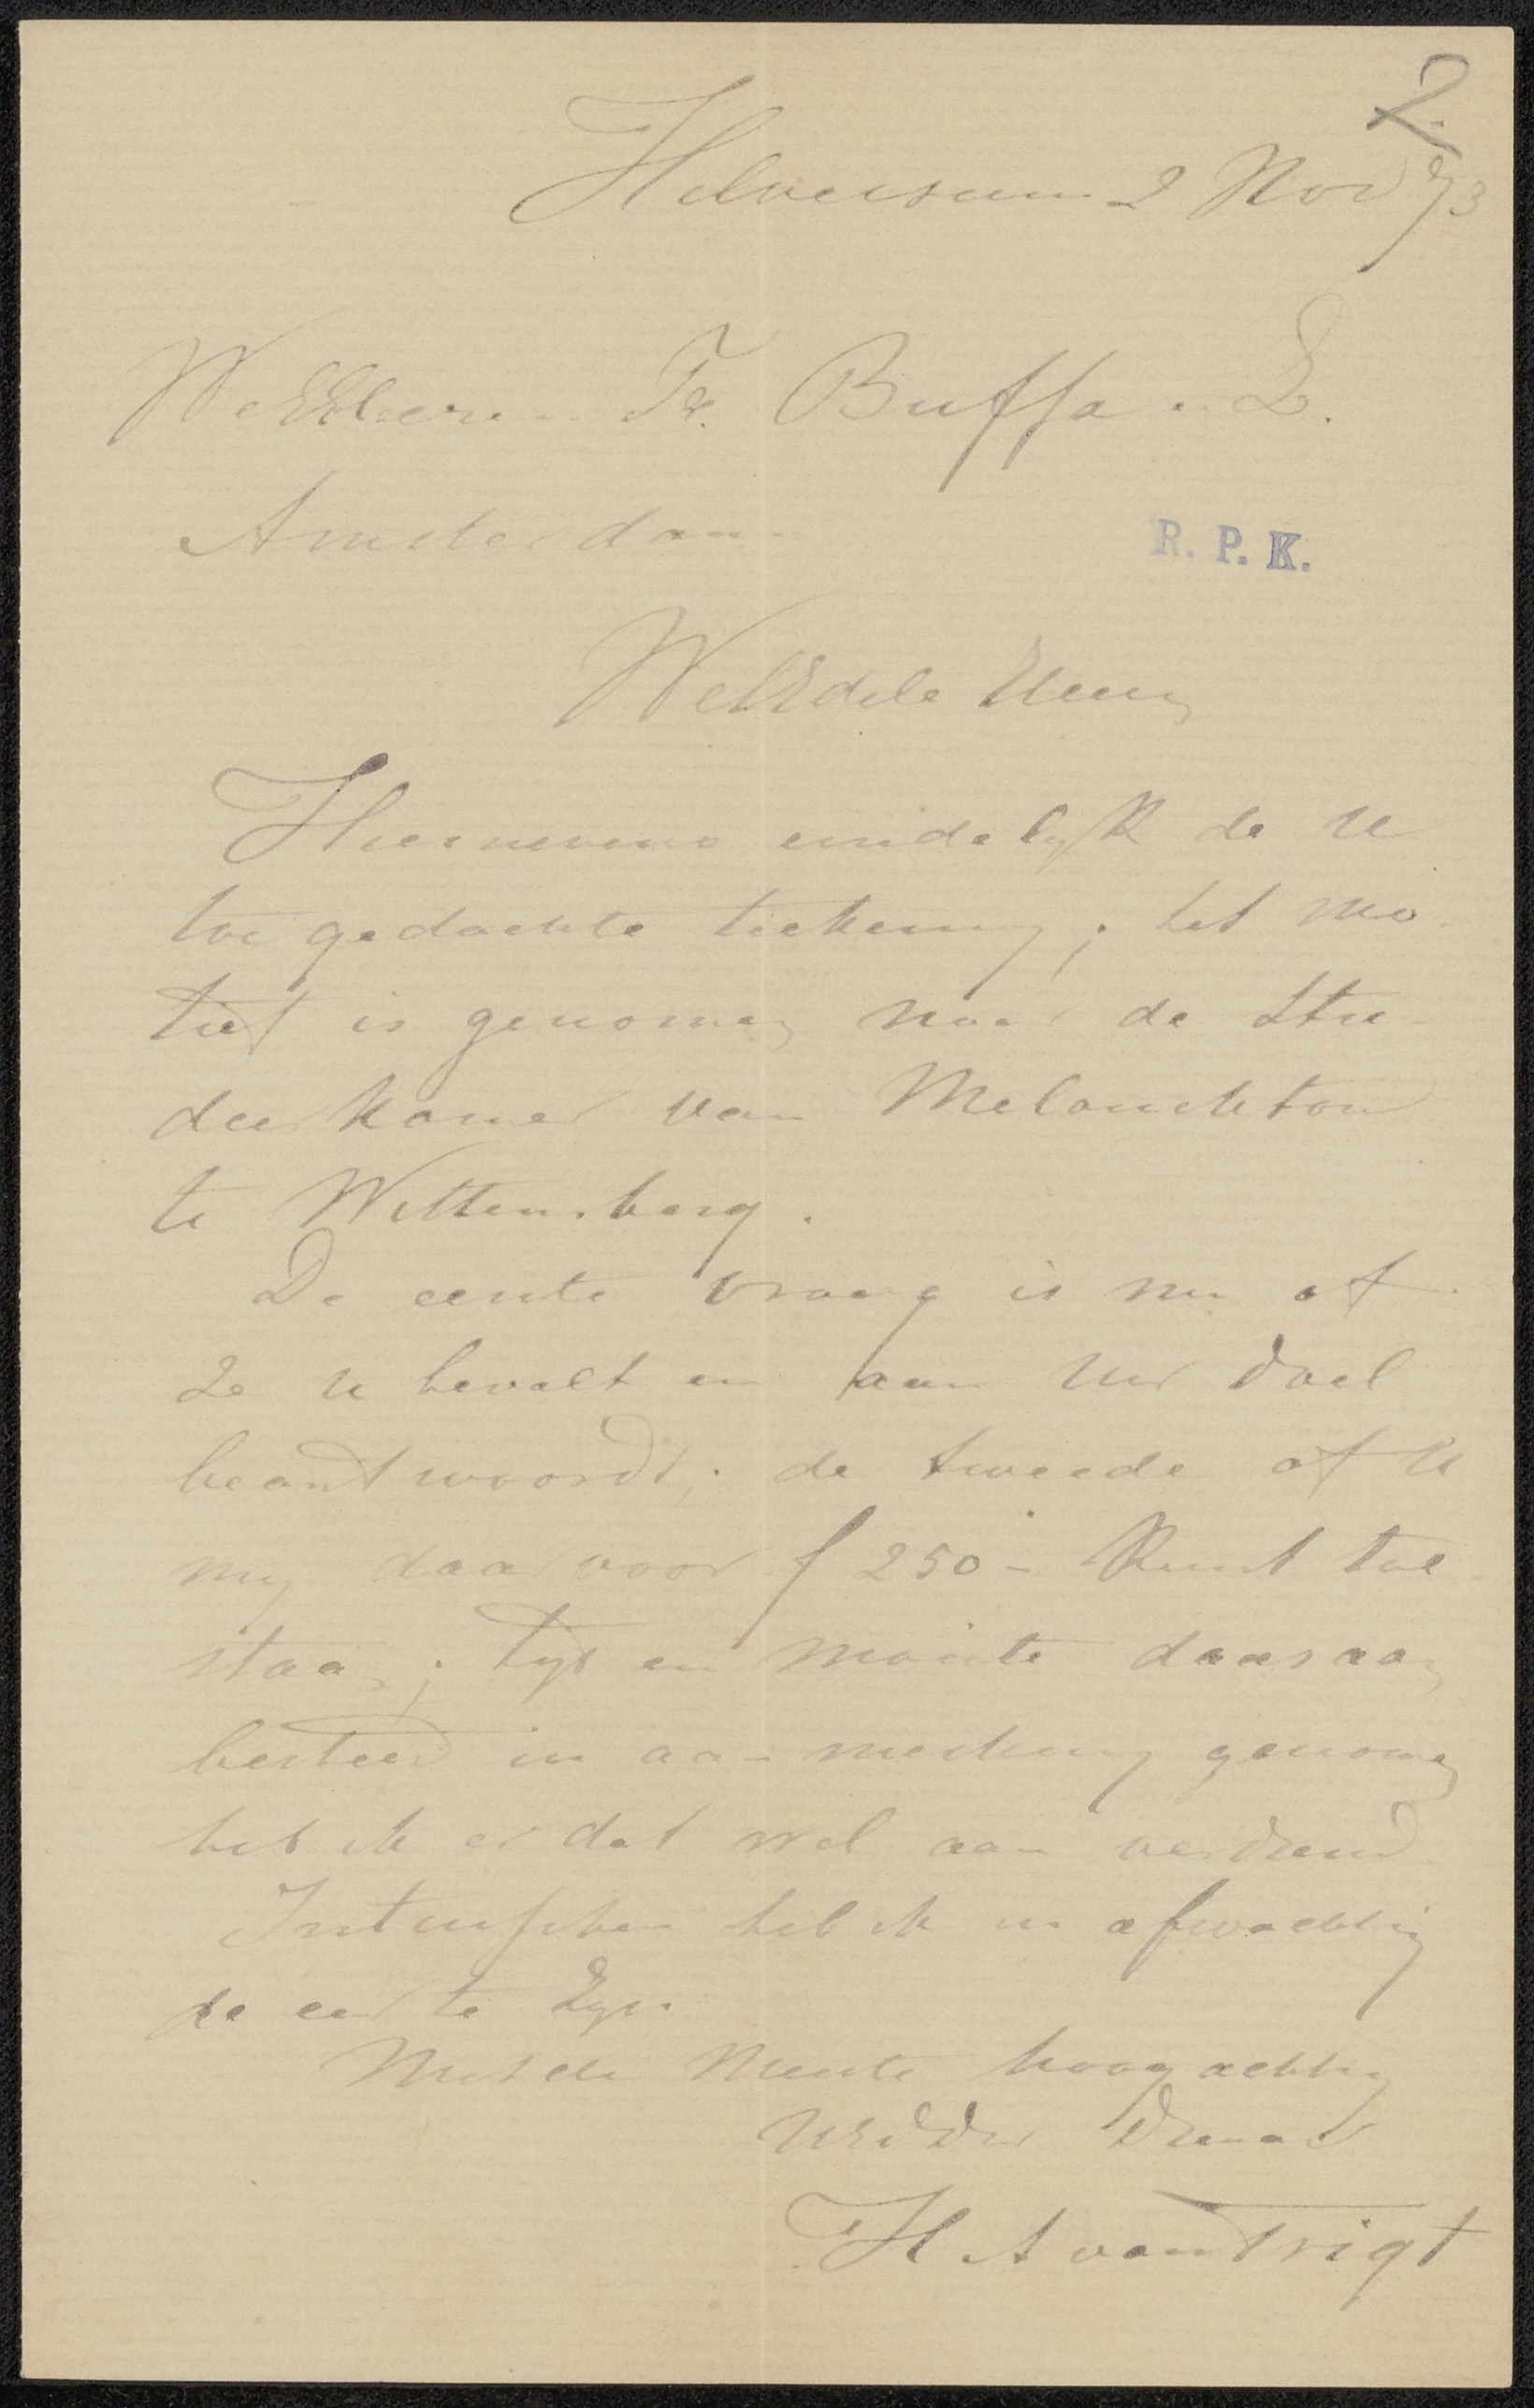 2.
Hilversum 2 Nov 73
WelEdele Heeren Fr. Buffa & Z.
Amsterdam
R. P. K.
WelEdele Heeren
Hiernevens eindelyk de U
toegedachte teekening; het mo-
tief is genomen naar de Stu-
deerkamer van Melanchton
te Wittenberg.
De eerste vraag is nu of
ze U bevalt en aan Uw doel
beantwoordt; de tweede of U
my daarvoor f 250 - kunt toe
staan; tyd en moeite daaraan
besteed in aanmerking genomen
heb ik er dat wel aan verdiend.
Intusschen heb ik in afwachting
de eer te Zyn
Met de Meeste hoogachting
UEdDw Dienaar
H A van Trigt